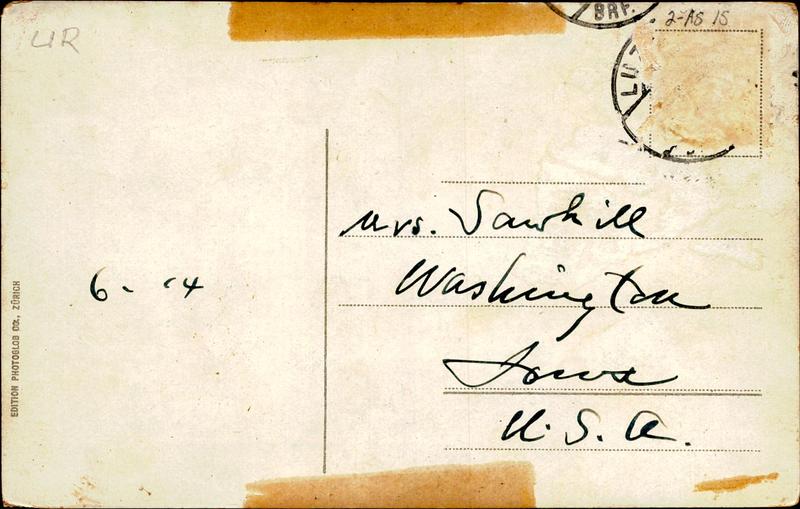 UR
BRF.
2-AS 15
LUZ
Mrs. Sawhill
Washington
6 - 14
Iowa
U. S. A.
EDITION PHOTOGLOB Co., ZÜRICH